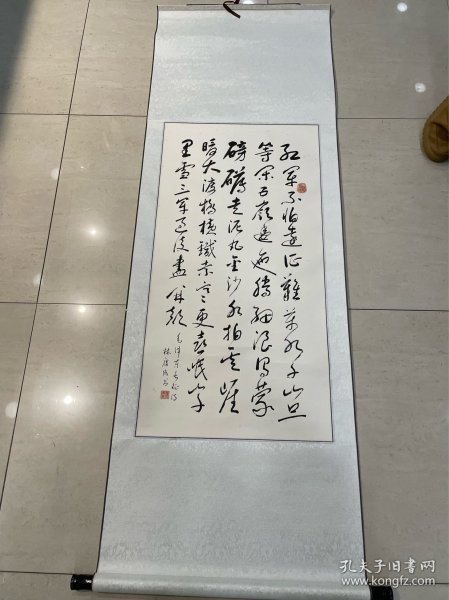 红军不怕远征難萬水千山只
等闲五嶺逶迤腾细浪乌蒙
磅礴走泥丸金沙水拍云崖
暖大渡桥横鐵索寒更喜岷山千
里雪三军过後盡开颜
毛泽东长征诗
孔夫子旧书网
www.kongfz.com